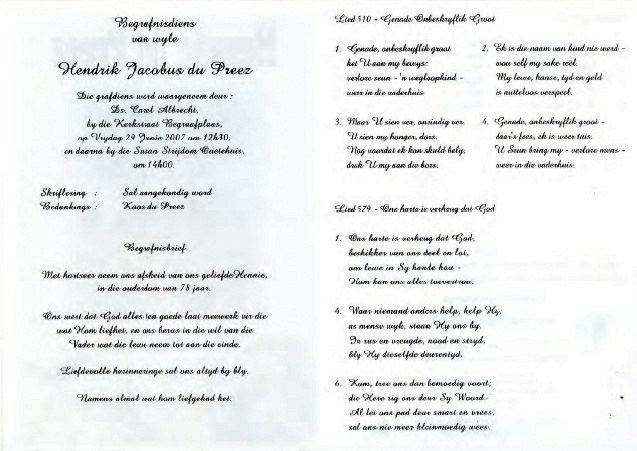 Begrafnisdiens
van wyle
Hendrik Jacobus du Preez
Die grafdiens word waargeneem deur :
Ds. Carel Albrecht,
by die Kerkstraat Begraafplaas,
op Vrydag 29 Junie 2007 om 12h30,
en daarna by die Susan Strijdom Ouetehuis,
om 14h00.
Skriflesing : Sal aangekondig word
Bedankings : Koos du Preez
Begrafnisbrief
Met hartseer neem ons afskeid van ons geliefde Hennie,
in die ouderdom van 78 jaar.
Ons weet dat God alles ten goede laat meewerk vir die
wat Hom liefhet, en ons berus in die wil van die
Vader wat die lewe neem tot aan die einde.
Liefdevolle herinneringe sal ons altyd by bly.
Namens almal wat hom liefgehad het.
Lied 510 - Genade Onbeskryflik Groot
1. Genade, onbeskryflik groot
het U aan my bewys:
verlore seun - 'n wegloopkind -
weer in die vaderhuis
2. Ek is die naam van kind nie werd -
wou self my sake reël.
My lewe, kanse, tyd en geld
is nutteloos verspeel.
3. Maar U sien ver, oneindig ver.
U sien my honger, dors.
Nog voordat ek kan skuld bely,
druk U my aan die bors.
4. Genade, onbeskryflik groot -
daar's fees, ek is weer tuis.
U Seun bring my - verlore mens -
weer in die vaderhuis.
Lied 579 - Ons harte is verheug dat God
1. Ons harte is verheug dat God,
beskikker van ons deel en lot,
ons lewe in Sy hande hou -
Hom kan ons alles toevertrou.
4. Waar niemand anders help, help Hy;
as mense wyk, staan Hy ons by.
In rus en vreugde, nood en stryd,
bly Hy dieselfde deurentyd.
6. Kom, tree ons dan bemoedig voort;
die Here rig ons deur Sy Woord.-
Al lei ons pad deur smart en vrees,
sal ons nie meer kleinmoedig wees.